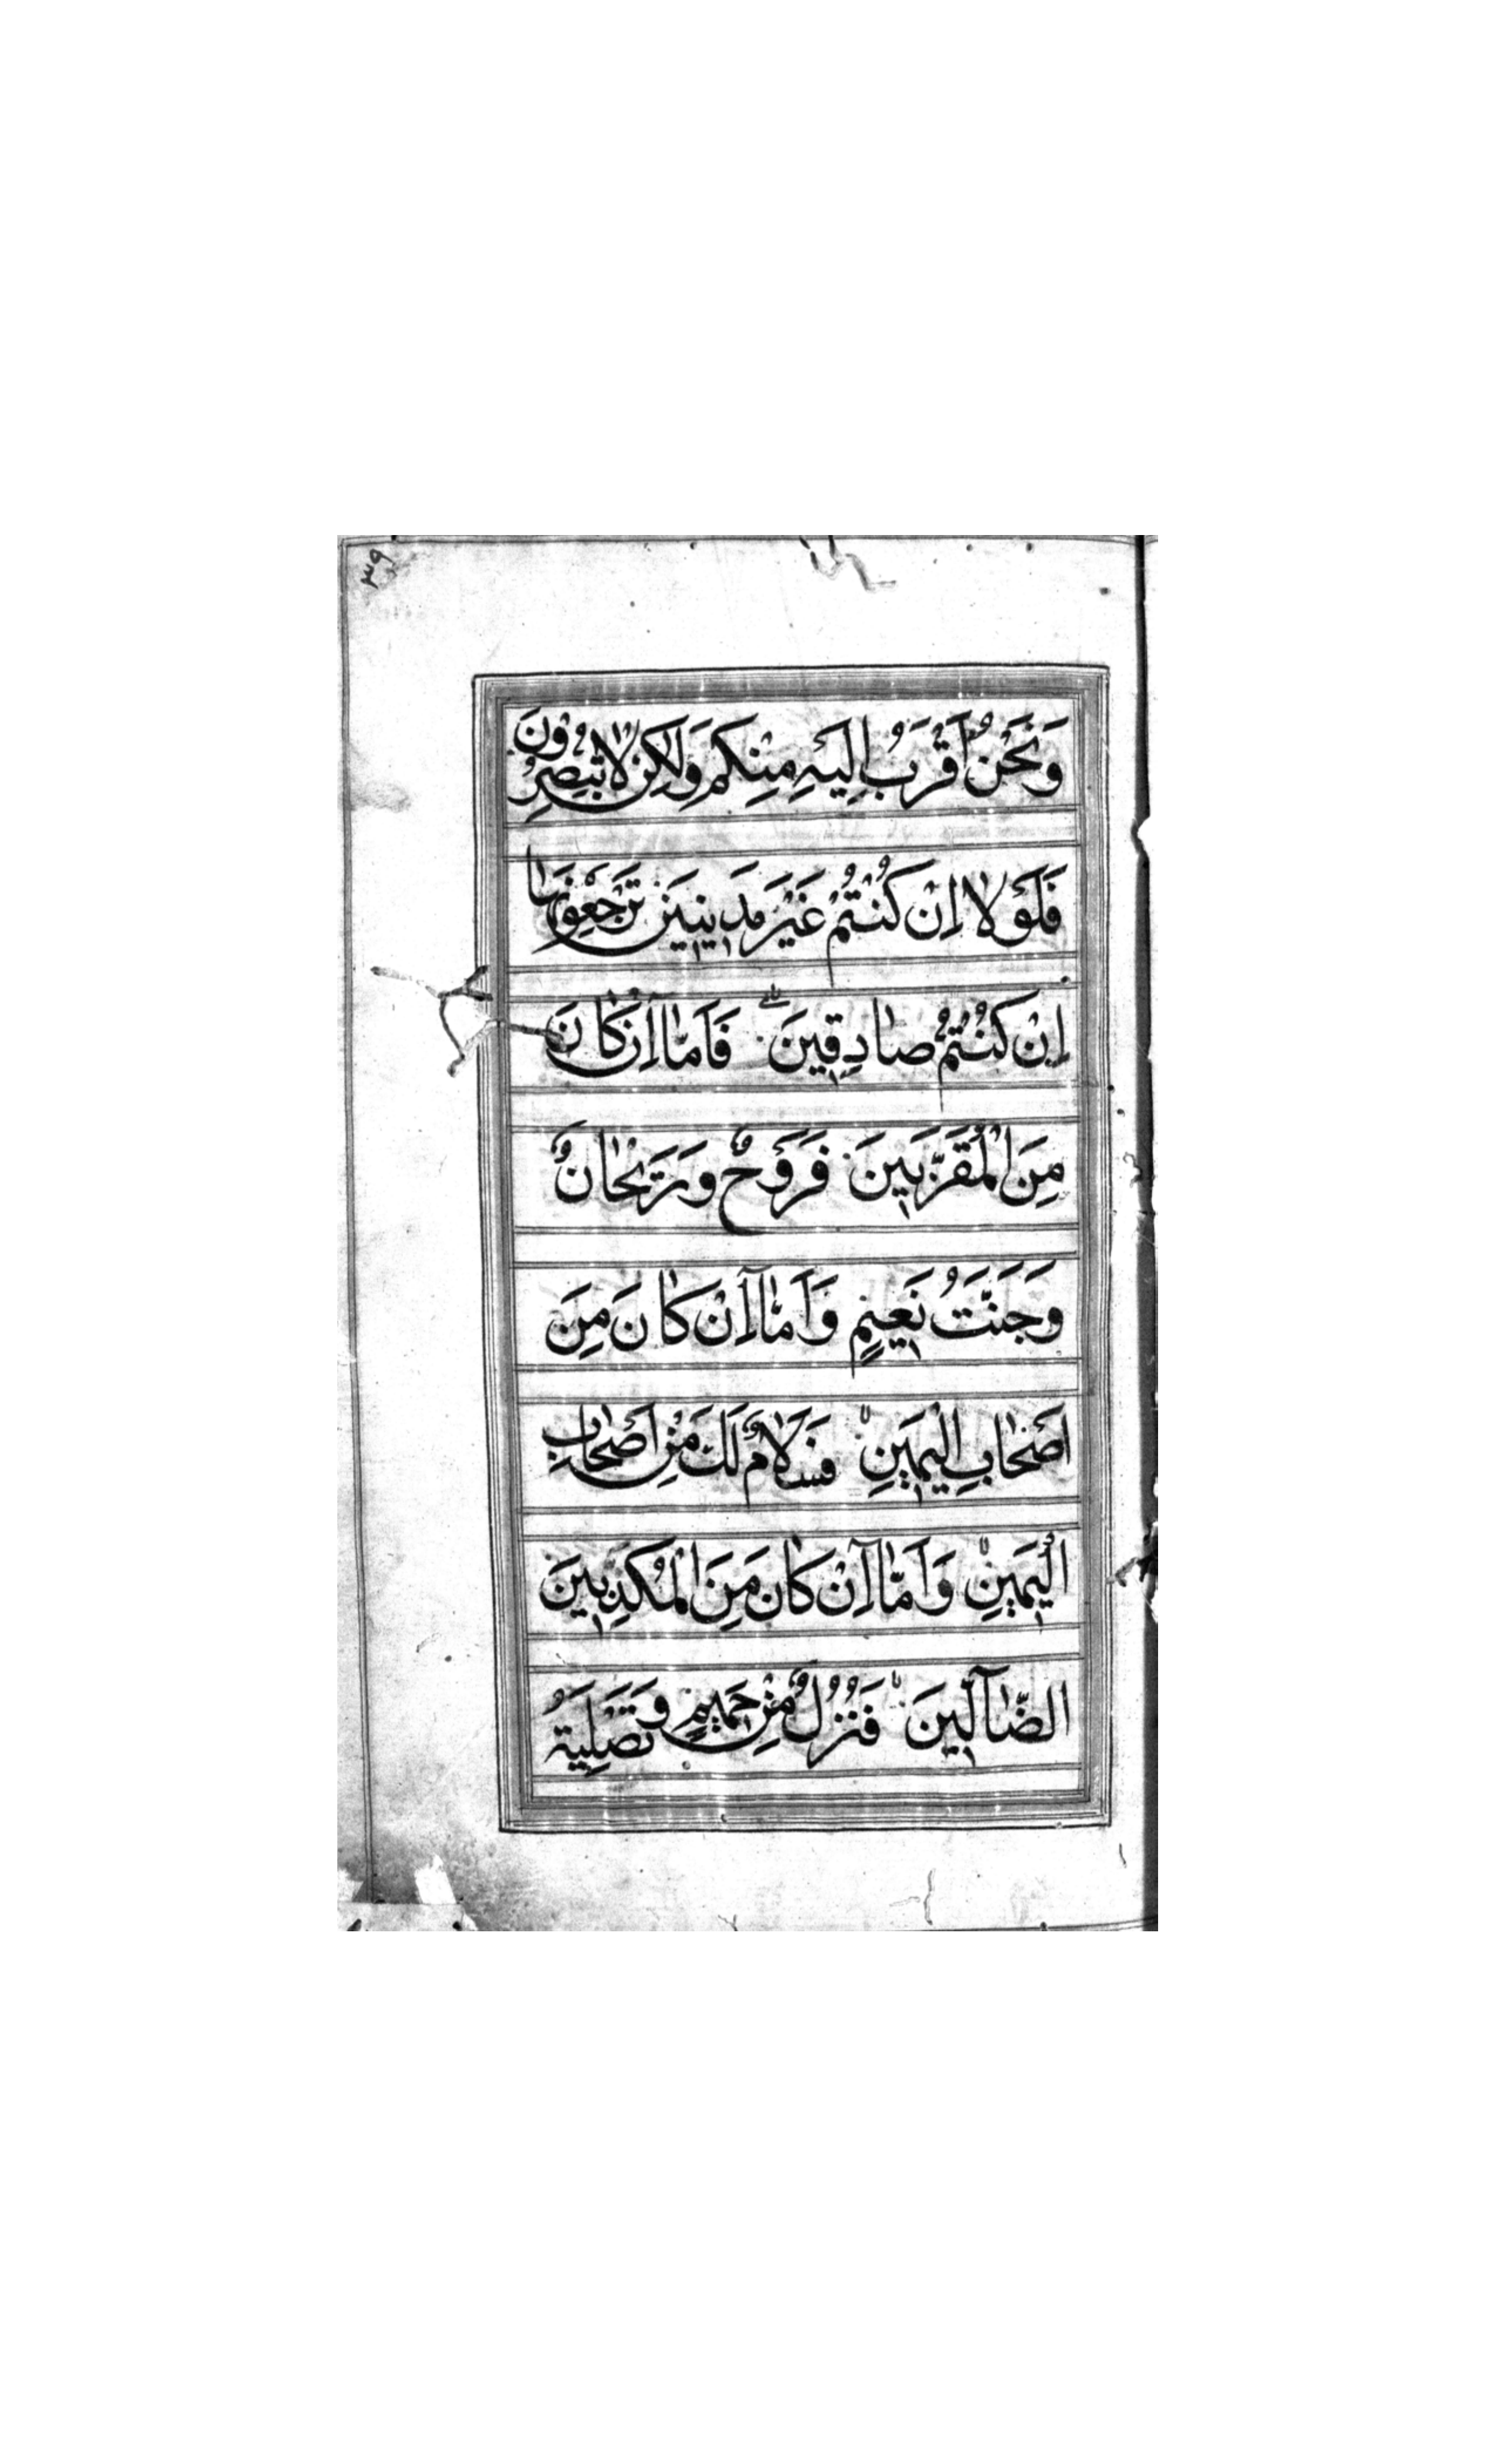 ۳۹
وَنَحْنُ اَقْرَبُ اِلَيْهِ مِنْكُمْ وَلٰكِنْ لَا تُبْصِرُونَ
فَلَوْلَا اِنْ كُنْتُمْ غَيْرَ مَدِينِينَ تَرْجِعُونَهَا
اِنْ كُنْتُمْ صَادِقِينَ فَاَمَّا اِنْ كَانَ
مِنَ الْمُقَرَّبِينَ فَرَوْحٌ وَرَيْحَانٌ
وَجَنَّتُ نَعِيمٍ وَاَمَّا اِنْ كَانَ مِنَ
اَصْحَابِ الْيَمِينِ فَسَلَامٌ لَكَ مِنْ اَصْحَابِ
الْيَمِينِ وَاَمَّا اِنْ كَانَ مِنَ الْمُكَذِّبِينَ
الضَّآلِّينَ فَنُزُلٌ مِنْ حَمِيمٍ وَتَصْلِيَةُ